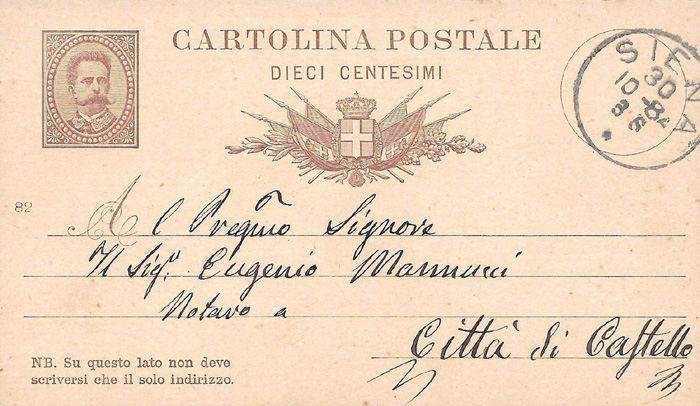 CARTOLINA POSTALE
DIECI CENTESIMI
SIENA
30
10-82
8 S
82
Al Pregmo Signore
Il Sigr. Eugenio Mannucci
Notaro a
Città di Castello
NB. Su questo lato non deve
scriversi che il solo indirizzo.